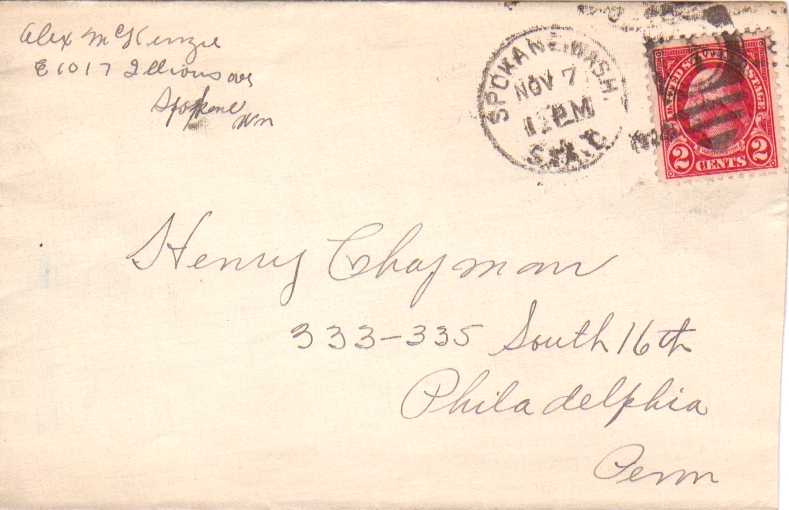 Alex McKenzie
E1017 Illinous ave
Spokane
Wn
SPOKANE, WASH.
NOV 7
12 PM
STA. C
UNITED STATES POSTAGE
2 CENTS 2
Henry Chapman
333-335 South 16th
Philadelphia
Penn